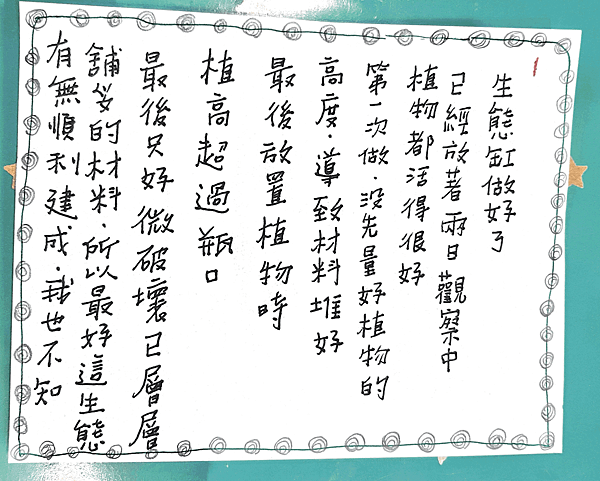 生態缸做好了
已經放著兩日觀察中
植物都活得很好
第一次做．沒先量好植物的
高度．導致材料堆好
最後放置植物時
植高超過瓶口
最後只好微破壞已層層
舖妥的材料．所以最好這生態
有無順利建成．我也不知